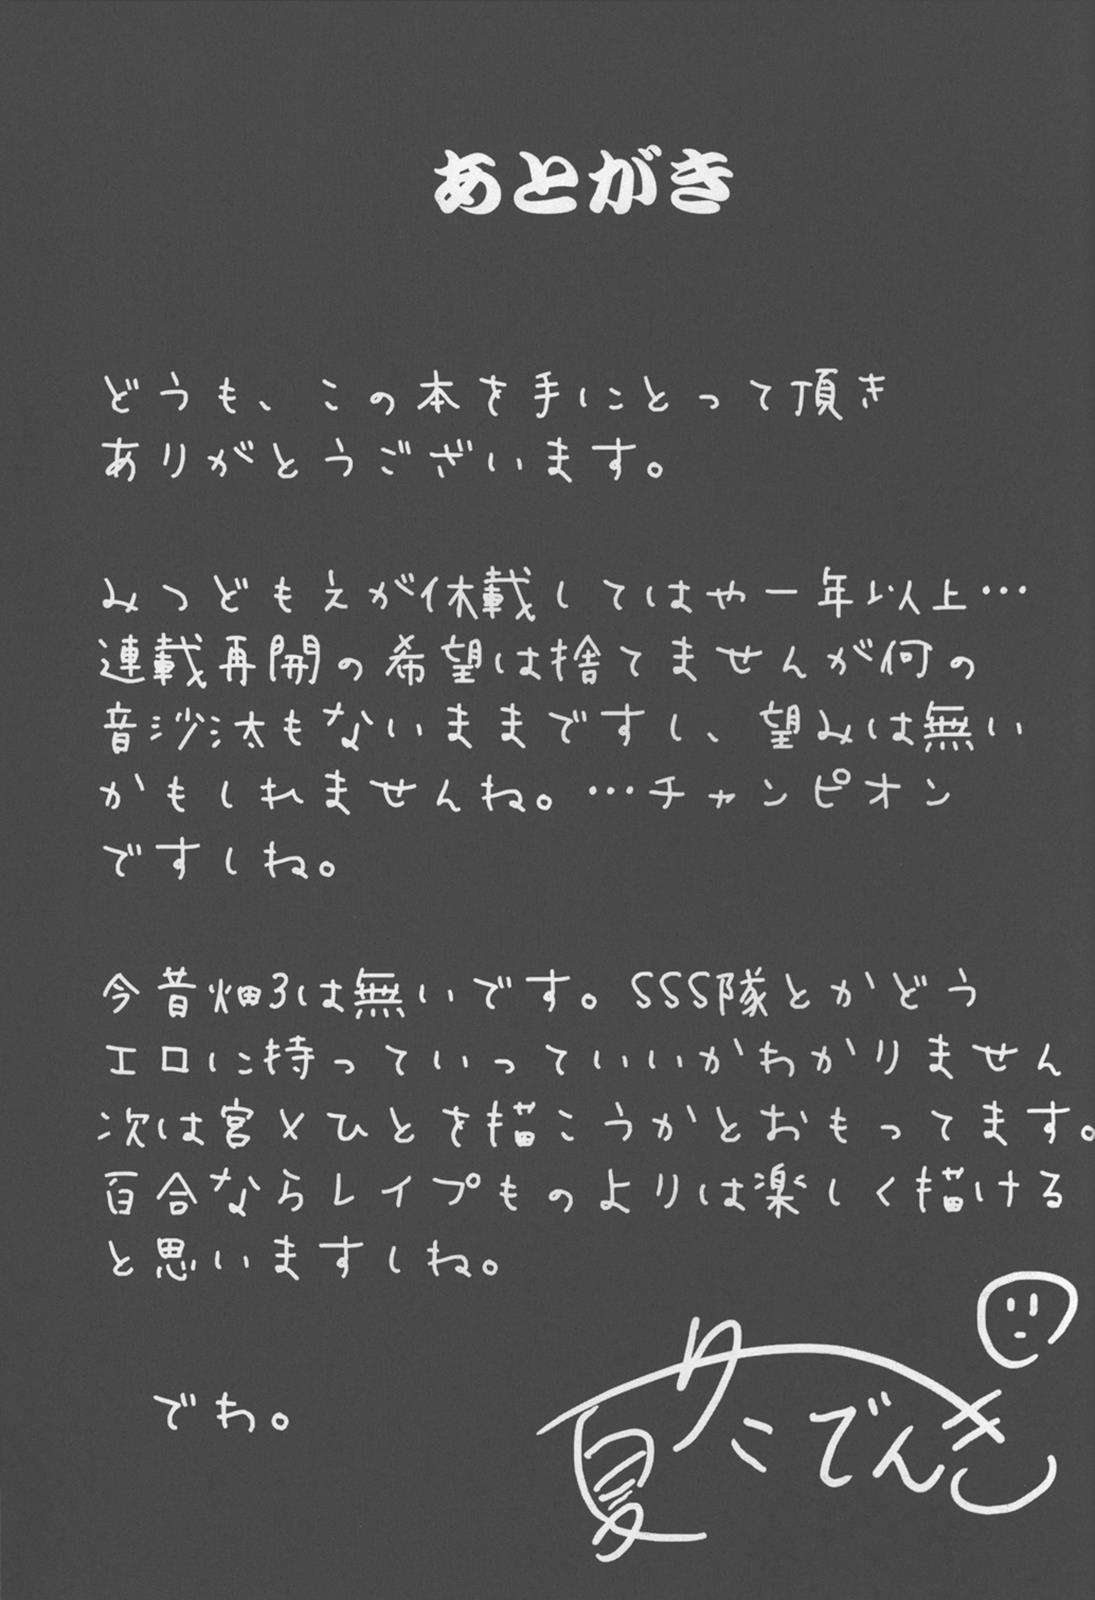 あとがき
どうも、この本を手にとって頂き
ありがとうございます。
みつどもえが休載してはや一年以上…
連載再開の希望は捨てませんが何の
音沙汰もないままですし、望みは無い
かもしれませんね。…チャンピオン
ですしね。
今昔畑3は無いです。SSS隊とかどう
エロに持っていっていいかわかりません
次は宮×ひとを描こうかとおもってます。
百合ならレイプものよりは楽しく描ける
と思いますしね。
でわ。
夏
こでんき